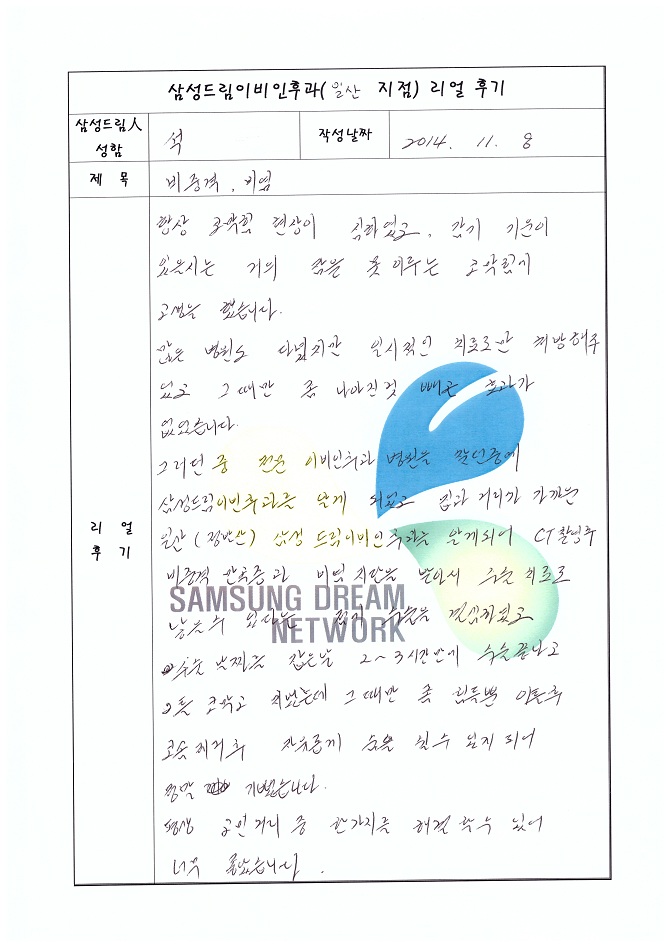 삼성드림이비인후과(일산 지점) 리얼 후기
삼성드림人 성함
석
작성날짜
2014. 11. 8
제 목
비중격, 비염
리 얼 후 기
항상 코막힘 현상이 심하였고, 감기 기운이
있을시는 거의 잠을 못이루는 코막힘에
고생을 했습니다.
많은 병원도 다녔지만 일시적인 치료로만 처방해주
었고 그때만 좀 나아진것 빼곤 효과가
없었습니다.
그러던 중 전문 이비인후과 병원을 찾던중에
삼성드림이비인후과를 알게 되었고 집과 거리가 가까운
일산(정발산) 삼성 드림이비인후과를 알게되어 CT촬영후
비중격 만곡증과 비염 진단을 받아서 수술 치료로
낳을수 있다는 수술을 결심하였고
수술 날짜를 잡은날 2~3시간만에 수술끝나고
코막고 지냈는데 그때만 좀 힘들뿐 이틀후
코솜제거후 자유롭게 숨을 쉴수 있게 되어
정말 기뻤습니다.
평생 고민거리 중 한가지를 해결 할수 있어
너무 좋았습니다.
SAMSUNG DREAM
NETWORK